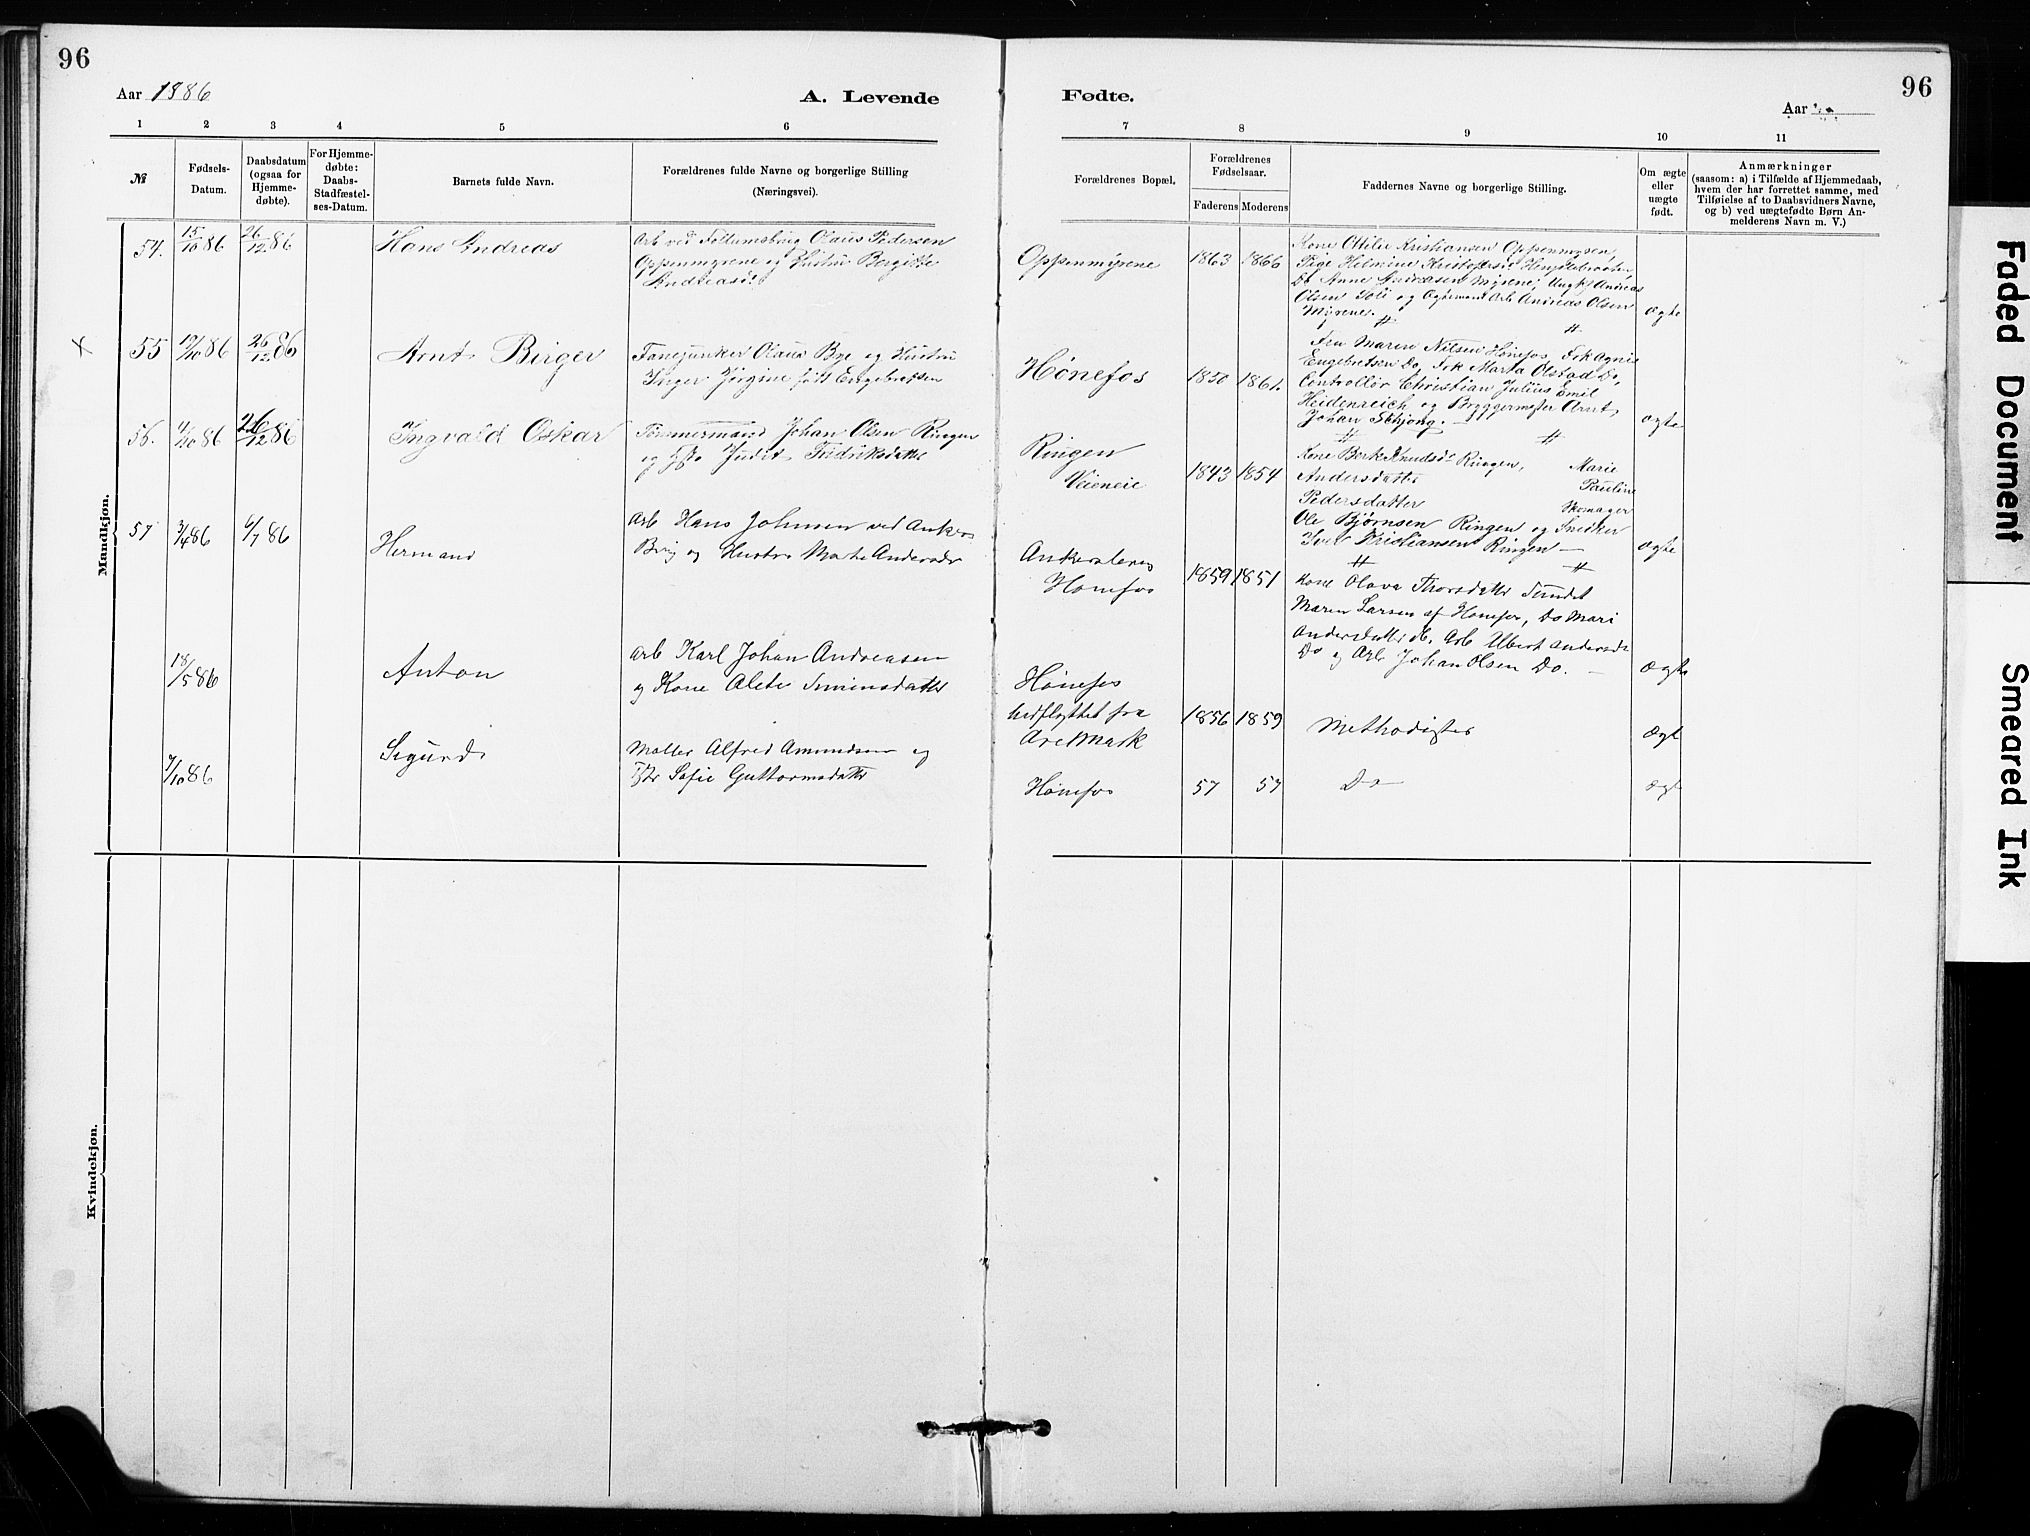 96
Aar 1886
A. Levende
1 2 3 4 5 6
№
Fødsels-
Datum.
Daabsdatum
(ogsaa for
Hjemme-
døbte).
For Hjemme-
døbte:
Daabs-
Stadfæstel-
ses-Datum.
Barnets fulde Navn.
Forældrenes fulde Navne og borgerlige Stilling
(Næringsvei).
Mandkjøn.
54. 15/10 86 26/12 86 Hans Andreas
Arb ved Follumsbrug Olaus Pedersen
Oppenmyrene og Hustru Borgitte
Andreasd.
x 55 19/10 86 26/12 86 Arnt Birger
Fanejunker Olaus Bye og Hustru
Inger Jørgine født Engebretsen
56. 11/10 86 26/12 86 Ingvald Oskar
Tømmermand Johan Olsen Ringen
og Hstr Judit Fredriksdatter
57 3/4 86 6/7 86 Hermand
Arb Hans Johnsen ved Ankers
Brug og Hustru Marte Andersdr
18/5 86 Anton
Arb Karl Johan Andreasen
og Kone Alete Simensdatter
7/10 86 Sigurd
Møller Alfred Amundsen og
Hstr Sofie Guttormsdatter
Kvindekjøn.
Fødte.
96
Aar
7 8 9 10 11
Forældrenes Bopæl.
Forældrenes
Fødselsaar.
Faderens Moderens
Faddernes Navne og borgerlige Stilling.
Om ægte
eller
uægte
født.
Anmærkninger
(saasom: a) i Tilfælde af Hjemmedaab,
hvem der har forrettet samme, med
Tilføielse af to Daabsvidners Navne,
og b) ved uægtefødte Børn An-
melderens Navn m. V.)
Oppenmyrene 1863 1866
Kone Otilie Kristiansen Oppenmyren,
Pige Helmine Kristofersd
Do Anne Andreasen Myrene, Ungk Andreas
Olsen Soli og Arb Andreas Olsen
Myrene.
ægte
Hønefos 1850 1861.
Fru Maren Nilsen Hønefos, Frk Agnes
Engebretsen Do, Frk Marta Olstad Do,
Controllør Christian Julius Emil
Heidenreich og Bryggermester Arnt
Johan Schjong.
ægte
Ringen
Veieneie 1843 1854
Kone Berte Knudsd. Ringen, Marie
Andersdatter Pauline
Pedersdatter Skomager
Ole Bjørnsen Ringen og Snekker
Iver Kristiansen Ringen
ægte
Hønefos 1859 1851
Kone Olava Thorsdatter
Maren Larsen af Hønefos, Do Mari
Andersdatter do, Arb Albert
Do og Arb Johan Olsen Do.
ægte
Hønefos
indflyttet fra
Aremark 1856 1859
Methodister
ægt
Hønefos 57 57
Do
ægt
Faded Document
Smeared Ink